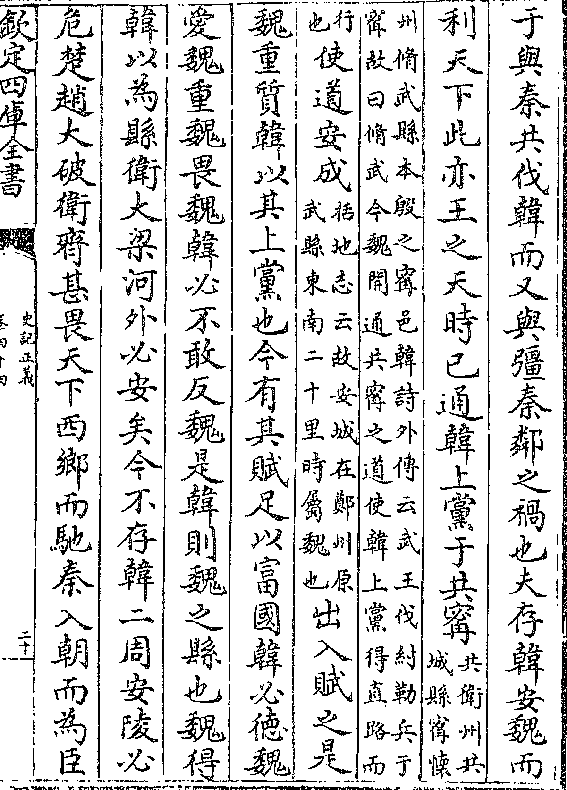 于與秦共伐韓而又與彊秦鄰之禍也夫存韓安魏而
利天下此亦王之天時已通韓上黨于共甯共衛州共城縣甯懷
州脩武縣本殷之甯邑韓詩外傳云武王伐紂勒兵于甯故曰脩武今魏開通共甯之道使韓上黨得直路而
行也使道安成括地志云故安城在鄭州原武縣東南二十里時屬魏也出入賦之是
魏重質韓以其上黨也今有其賦足以富國韓必德魏
愛魏重魏畏魏韓必不敢反魏是韓則魏之縣也魏得
韓以為縣衛大梁河外必安矣今不存韓二周安陵必
危楚趙大破衛齊甚畏天下西鄉而馳秦入朝而為臣
欽定四庫全書
史記正義
卷四十四
二十